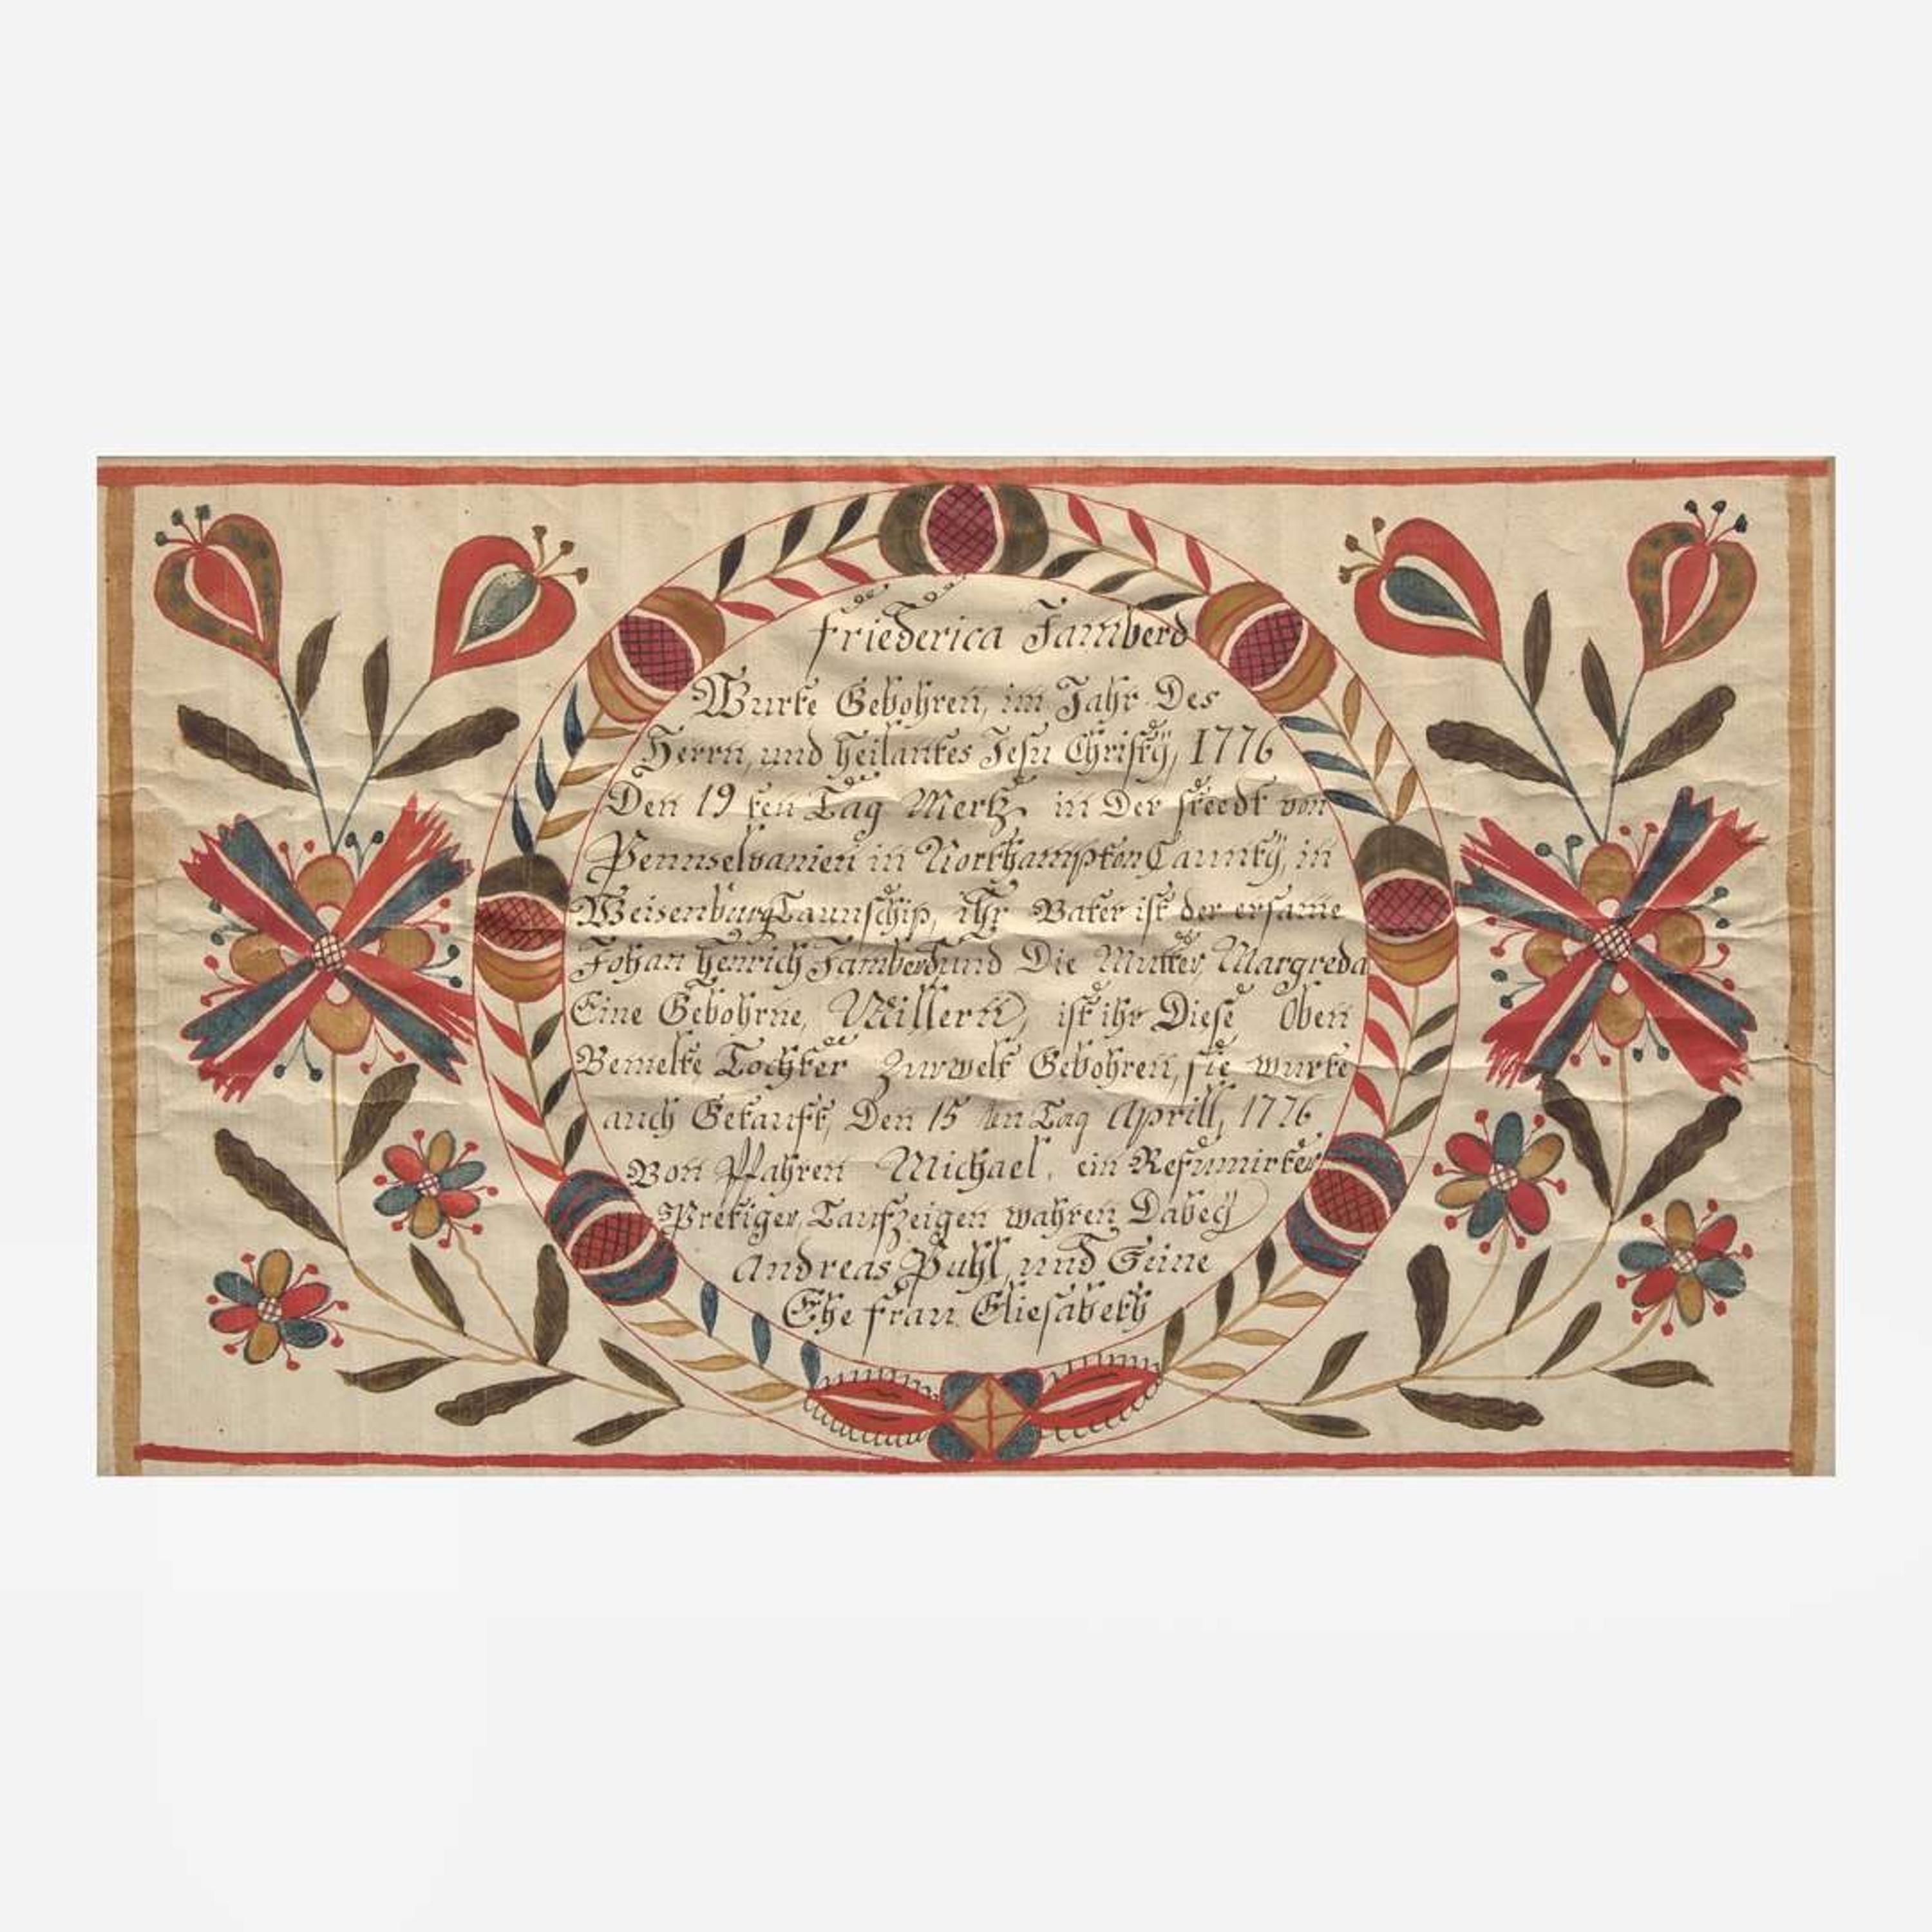 Friederica Jamberd
Wurte Gebohren, im Jahr Des
Herrn, und Heilantes Jesu Christÿ, 1776
Den 19 ten Tag Mertz, in Der steedt von
Pennselvanien in Northampton Caunty, in
Weisenburg Taunschip, ihr Vater ist der ersame
Johan Henrich Jamberd und Die Mutter, Margreda
Eine Gebohrne, Millern, ist ihr Diese Oben
Bemelte, Tochter Zur welt Gebohren, sie wurte
auch Getauft, Den 15 ten Tag Aprill, 1776
Von Pfahren Michael, ein Refurmirter
Pretiger, Taufzeigen wahren Dabey
Andreas Puhl, und Seine
Ehe frau Eliesabeth